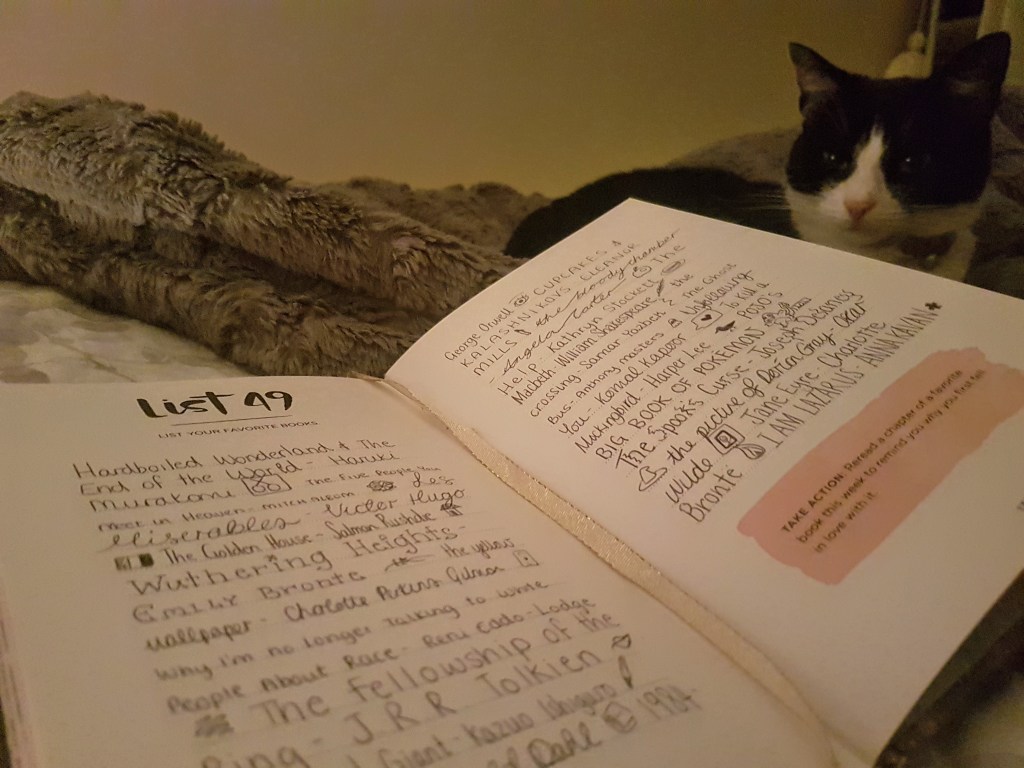 List 49
LIST YOUR FAVORITE BOOKS
Hardboiled Wonderland & The
End of the World - Haruki
Murakami The Five People You
meet in Heaven - mitch Albom Les
Miserables Victor Hugo
The Golden House - Salman Rushdie
Wuthering Heights -
Emily Bronte the yellow
wallpaper - Charlotte Perkins Gilman
Why i'm no longer talking to white
People About Race - Reni Eddo-Lodge
The Fellowship of the
Ring - J R R Tolkien
Giant - Kazuo Ishiguro
Dahl 1984
George Orwell CUPCAKES &
KALASHNIKOVS ELEANOR
MILLS the bloody chamber
Angela Carter The
Help - Kathryn Stockett
Macbeth - William Shakespeare the
crossing - Samar Yazbek The Ghost
Bus - Anthony masters Upspeaking
You - Konrad Kapoor To kill a
Mockingbird - Harper Lee POJO'S
BIG BOOK OF POKEMON
The Spook's Curse - Joseph Delaney
the picture of Dorian Gray - Oscar
Wilde Jane Eyre - Charlotte
Brontë I AM LAZARUS - ANNA KAVAN
TAKE ACTION: Reread a chapter of a favorite
book this week to remind you why you first fell
in love with it.